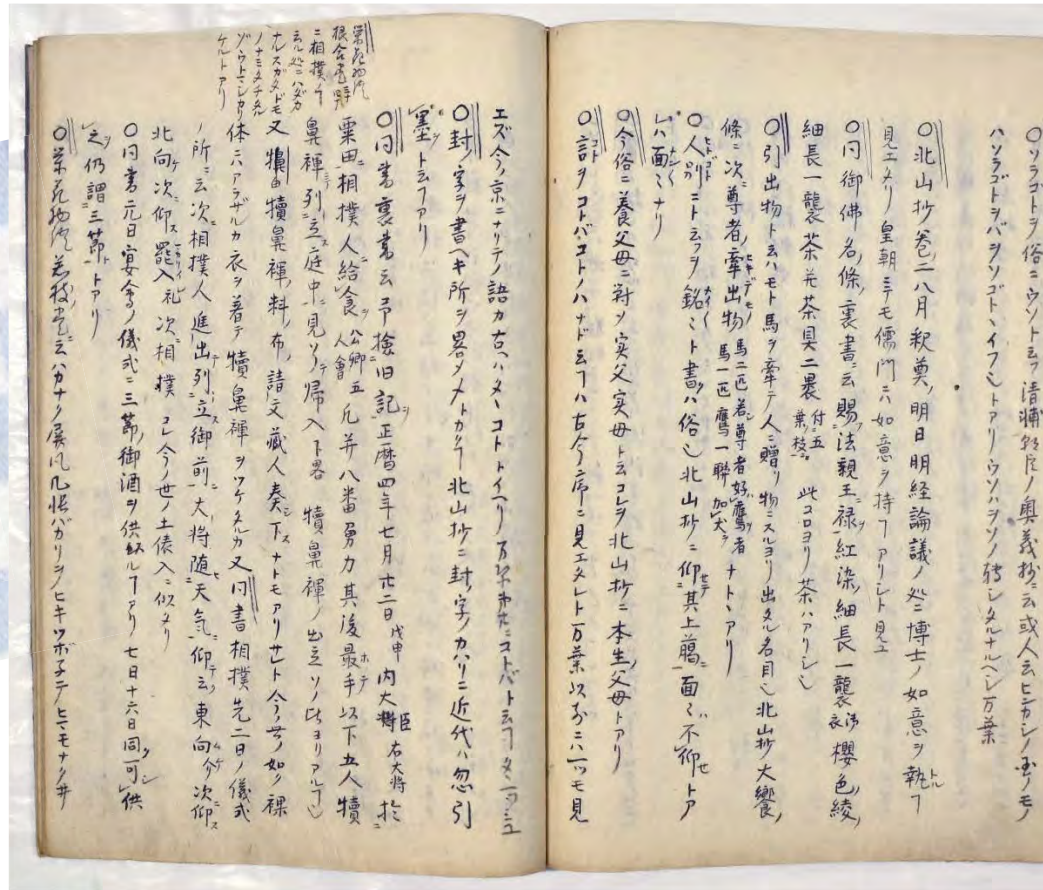 〇ソラゴトヲ俗ニウソト云フ清輔朝臣ノ奥義抄ニ云或人云ヒンカシノ国ノモノ
ハソラゴトヲバヲソゴトヽイフ也トアリウソハヲソノ轉シタルナルヘシ万葉
〇北山抄巻ノ二八月釈奠ノ明日明経論議ノ処ニ博士ノ如意ヲ執フ
見エタリ皇朝ニテモ儒門ニハ如意ヲ持フアリシト見エ
〇同御佛名ノ條ノ裏書ニ云賜法親王禄紅染細長一襲法衣櫻色綾ノ
細長一襲茶并茶具二褁付五葉ノ枝ニ此コロヨリ茶ハアリシ也
〇引出物ト云ハモト馬ヲ牽テ人ニ贈リ物ニスルヨリ出タル名目也北山抄大饗ノ
條ニ次ニ尊者ノ牽出物馬二匹若尊者好鷹者馬一匹鷹一聯加犬ナトヽアリ
〇人別ニト云フヲ銘々ト書クハ俗也北山抄ニ仰其上臈ニ面々不仰トア
レハ面々ナリ
〇今俗ニ養父母ニ對シ実父実母ト云コレヲ北山抄ニ本生ノ父母トアリ
〇言ヲコトバコトノハナド云フハ古今序ニ見エタレト万葉以前ニハ一ツモ見
エズ今ノ京ニナリテノ語カ古ハタヽコトトイヘリ
〇封ノ字ヲ書ヘキ所ヲ畧シメトカク北山抄ニ封ノ字ノカハリニ近代ハ忽引
墨ヲト云フアリ
〇同書裏書云予撿旧記正暦四年七月廿二日戊申内大臣右大将於
粟田相撲人給食公卿五人會九并八番勇力其後最手以下五人犢
鼻褌ニテ列立庭中ニ見了テ帰入下畧犢鼻褌ノ出立ソノ比ヨリアルフ也
又犢鼻褌ノ料ノ布ノ請文藏人奏下スナトモアリサレト今ノ世ノ如ク裸
体ニハアラザルカ衣ヲ着テ犢鼻褌ヲツケタルカ又同書相撲先二日ノ儀式
ノ所ニ云次ニ相撲人進出テ列立御前ニ大将随天氣ニ仰テ云東向ケ次仰ス
北向ケ次ニ仰ス罷入礼次ニ相撲コレ今ノ世ノ土俵入ニ似タリ
〇同書元日宴會ノ儀式ニ三節ノ御酒ヲ供スルフアリ七日十六日同可供
之仍謂三節トアリ
〇栄花物語若枝巻ニ云ハカナク屏風几帳バカリヲヒキツボ子テヒマモナク井
栄花物語
根合巻
ニ相撲ノ
云処ニハダカ
ナルスガタドモ
ノナミタチタル
ゾウトマシカリ
ケルトアリ